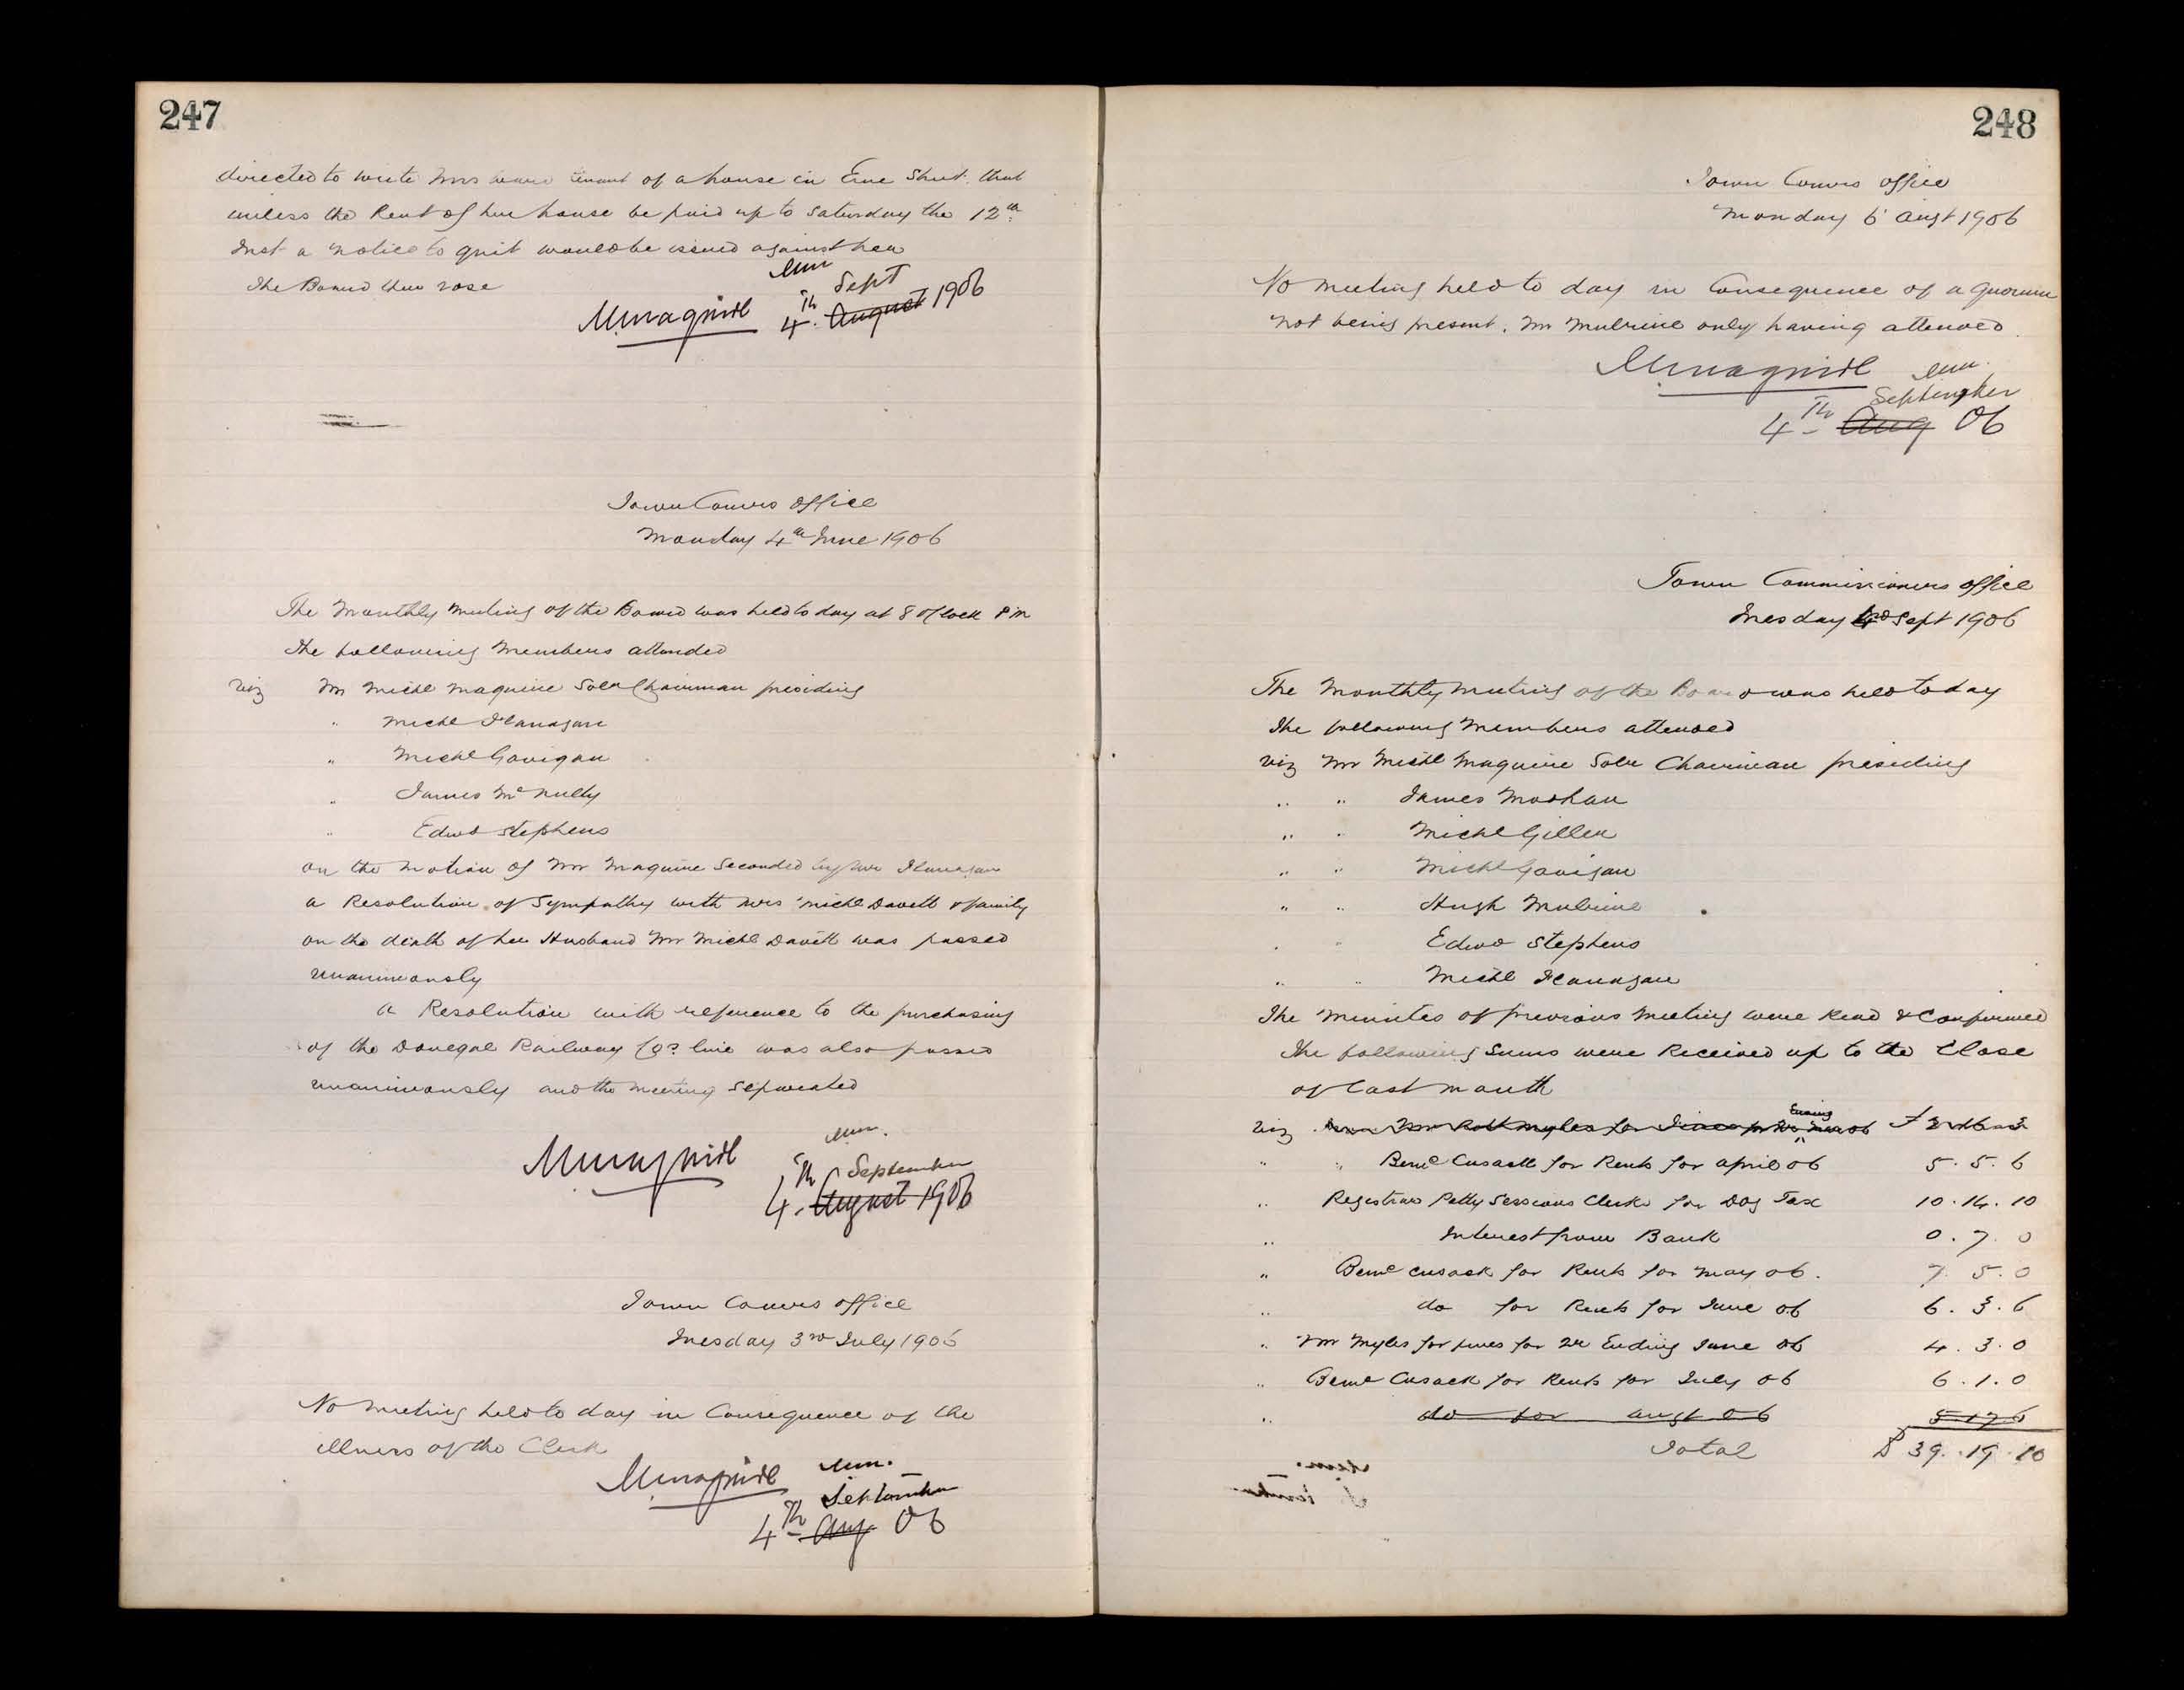 247
directed to write Mrs tenant of a house in Erne Street that
unless the Rent of her house be paid up to Saturday the 12th
Inst a notice to quit would be issued against her
The Board then rose
MMaguire 4th Sept August 1906
Town Comrs Office
Monday 4th June 1906
The Monthly Meeting of the Board was held to day at 8 O'Clock P m
The following Members attended
viz Mr Michl Maguire Solr Chairman presiding
" Michl Flanagan
" Michl Gavigan
" James McNulty
" Edwd Stephens
on the Motion of Mr Maguire Seconded by Mr Flanagan
a Resolution of Sympathy with Mrs Michl Davitt & family
on the death of her Husband Mr Michl Davitt was passed
unanimously
a Resolution with reference to the purchasing
of the Donegal Railway Co. line was also passed
unanimously and the meeting separated
MMaguire
4th September August 1906
Town Comrs Office
Tuesday 3rd July 1906
No meeting held to day in Consequence of the
illness of the Clerk
MMaguire
September
4th Aug 06
248
Town Comrs Office
Monday 6 Augt 1906
No meeting held to day in Consequence of a Quorum
not being present. Mr Mulrine only having attended
MMaguire
September
4th Aug 06
Town Commissioners Office
Tuesday 4 Sept 1906
The Monthly Meeting of the Board was held to day
The following Members attended
viz Mr Michl Maguire Solr Chairman presiding
" " James Moohan
" " Michl Gillen
" " Michl Gavigan
" " Hugh Mulrine
" " Edwd Stephens
" " Michl Flanagan
The Minutes of previous Meeting were Read & Confirmed
The following Sums were Received up to the Close
of last month
viz Mr Robt Myles for Ending
" " Bernd Cusack for Rents for April 06 5.5.6
" Registrar Petty Sessions Clerk for Dog Tax 10.14.10
" Interest from Bank 0.7.0
" Bernd Cusack for Rents for May 06. 7.5.0
" do for Rents for June 06 6.3.6
" Mr Myles for fines for Qr Ending June 06 4.3.0
" Bernd Cusack for Rents for July 06 6.1.0
" do for Augt 06 5 17 6
Total £ 39.19.10